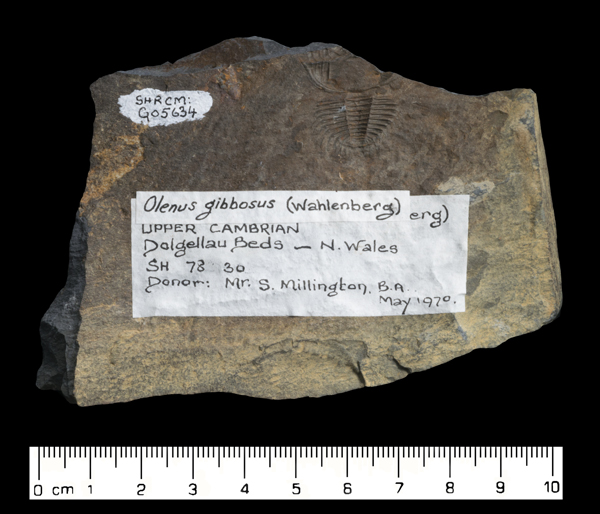 SHRCM:
G05634
Olenus gibbosus (Wahlenberg) erg)
UPPER CAMBRIAN
Dolgellau Beds — N. Wales
SH 73 30
Donor: Mr. S. Millington, B.A.
May 1970.
0 cm 1 2 3 4 5 6 7 8 9 10